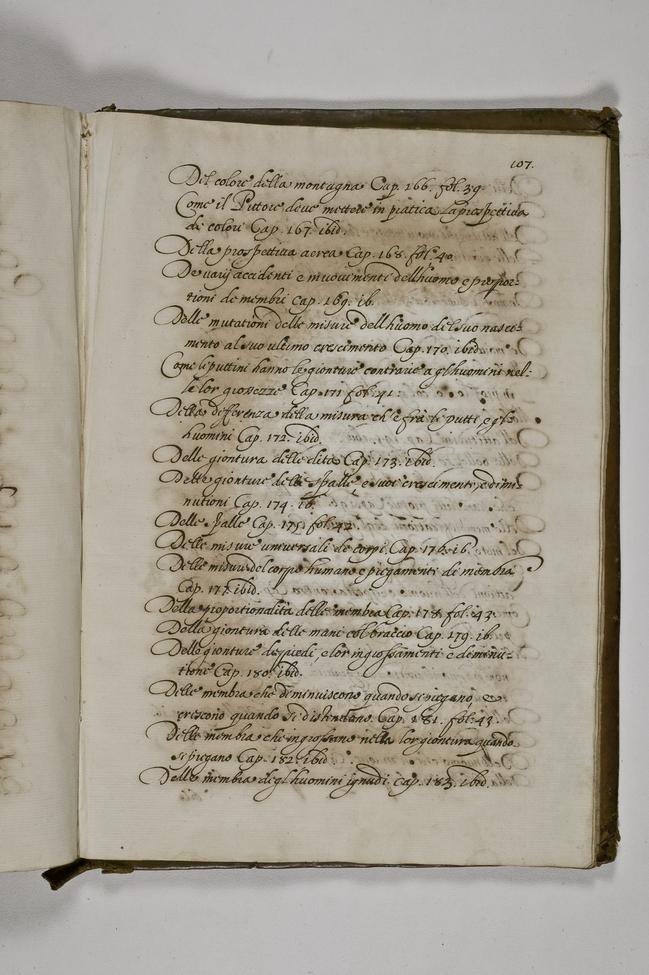 107.
Del colore della montagna Cap. 166. fol. 39.
Come il Pittore deue mettere in pratica la prospettiua
de colori Cap. 167. ibid.
Della prospettiua aerea Cap. 168. fol. 40.
De varij accidenti e mouimenti dell'huomo e propor-
tioni de membri Cap. 169. ib.
Delle mutationi delle misure dell'huomo del suo nasci-
mento al suo ultimo crescimento Cap. 170. ibid.
Come li puttini hanno le gionture contrarie a gl'huomini nel-
le lor grossezze Cap. 171 fol. 41.
Della differenza della misura ch'è frà li putti, e gl'-
huomini Cap. 172. ibid.
Delle gionture delle dita Cap. 173. ibid.
Delle gionture delle spalle, e suoi crescimenti, e dimi-
nutioni Cap. 174. ib.
Delle spalle Cap. 175. fol. 42.
Delle misure uniuersali de corpi. Cap. 176. ib.
Delle misure del corpo humano e piegamenti de membra
Cap. 177. ibid.
Della proportionalità delle membra Cap. 178. fol. 43.
Della giontura delle mani col braccio Cap. 179. ib.
Delle gionture de piedi, e lor ingrossamenti e diminu-
tione Cap. 180. ibid.
Delle membra che diminuiscono quando si piegano, e
crescono quando si distendano. Cap. 181. fol. 43.
Delle membra che ingrossano nella lor giontura quando
si piegano Cap. 182. ibid
Delle membra degl'huomini ignudi. Cap. 183. ibid.